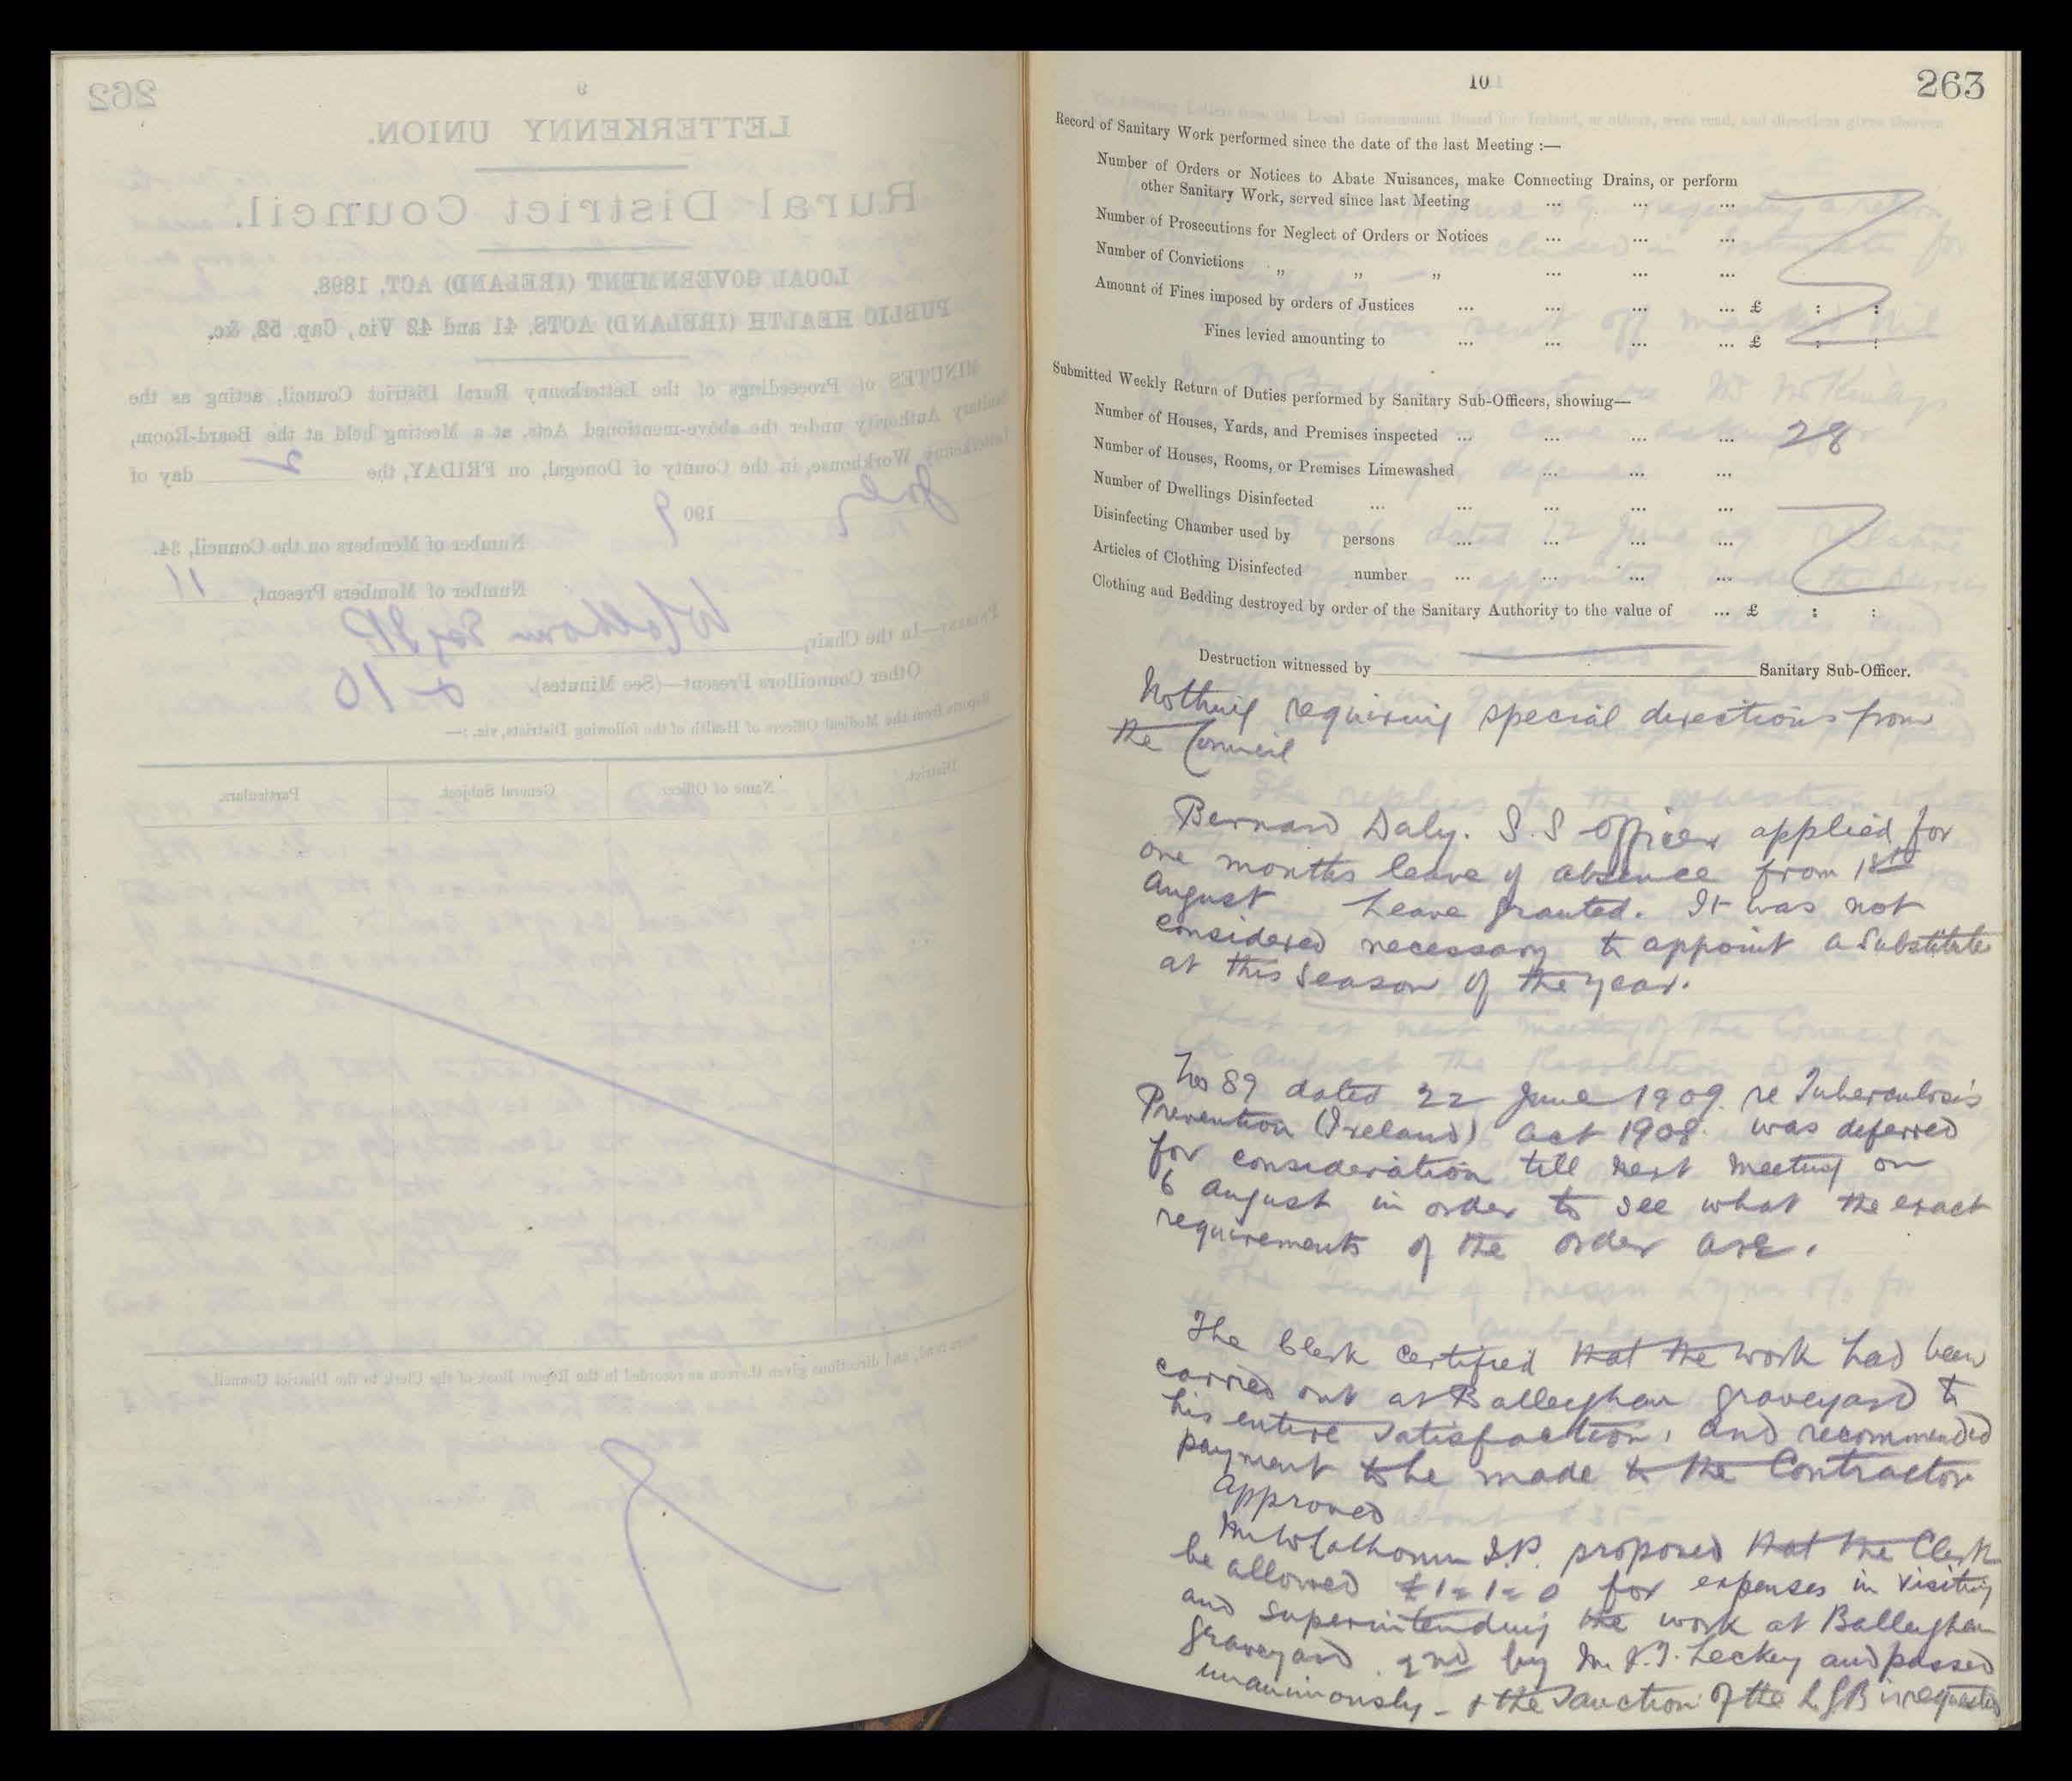 262
9
LETTERKENNY UNION.
Rural District Council.
LOCAL GOVERNMENT (IRELAND) ACT, 1898.
PUBLIC HEALTH (IRELAND) ACTS, 41 and 42 Vic., Cap. 52, &c.
MINUTES of Proceedings of the Letterkenny Rural District Council, acting as the
Sanitary Authority under the above-mentioned Acts, at a Meeting held at the Board-Room,
Letterkenny Workhouse, in the County of Donegal, on FRIDAY, the 2 day of
July 1909
Number of Members on the Council, 34.
Number of Members Present, 11
Present—In the Chair,
Other Councillors Present—(See Minutes). & 10
Reports from the Medical Officers of Health of the following Districts, viz. :—
District. Name of Officer. General Subject. Particulars.
were read, and directions given thereon as recorded in the Report Book of the Clerk to the District Council.
10
263
Record of Sanitary Work performed since the date of the last Meeting :—
Number of Orders or Notices to Abate Nuisances, make Connecting Drains, or perform
other Sanitary Work, served since last Meeting ... ... ...
Number of Prosecutions for Neglect of Orders or Notices ... ... ...
Number of Convictions „ „ „ ... ... ...
Amount of Fines imposed by orders of Justices ... ... ... ... £ : :
Fines levied amounting to ... ... ... ... £ : :
Submitted Weekly Return of Duties performed by Sanitary Sub-Officers, showing—
Number of Houses, Yards, and Premises inspected ... ... ... ... 28
Number of Houses, Rooms, or Premises Limewashed ... ... ...
Number of Dwellings Disinfected ... ... ... ... ...
Disinfecting Chamber used by persons ... ... ... ...
Articles of Clothing Disinfected number ... ... ... ...
Clothing and Bedding destroyed by order of the Sanitary Authority to the value of ... £ : :
Destruction witnessed by Sanitary Sub-Officer.
Nothing requiring special directions from
the Council
Bernard Daly. S.S officer applied for
one months leave of absence from 1st
August Leave granted. It was not
considered necessary to appoint a Substitute
at this Season of the year.
No 89 dated 22 June 1909. re Tuberculosis
Prevention (Ireland) Act 1908. was deferred
for consideration till next meeting on
6 August in order to see what the exact
requirements of the order are.
The Clerk certified that the work had been
carried out at Balleeghan graveyard to
his entire satisfaction, and recommended
payment to be made to the Contractor
Approved
Mr W Calhoun J.P. proposed that the Clerk
be allowed £1=1=0 for expenses in visiting
and superintending the work at Balleeghan
graveyard. 2nd by Mr Leckey and passed
unanimously - & the Sanction of the LGB is requested